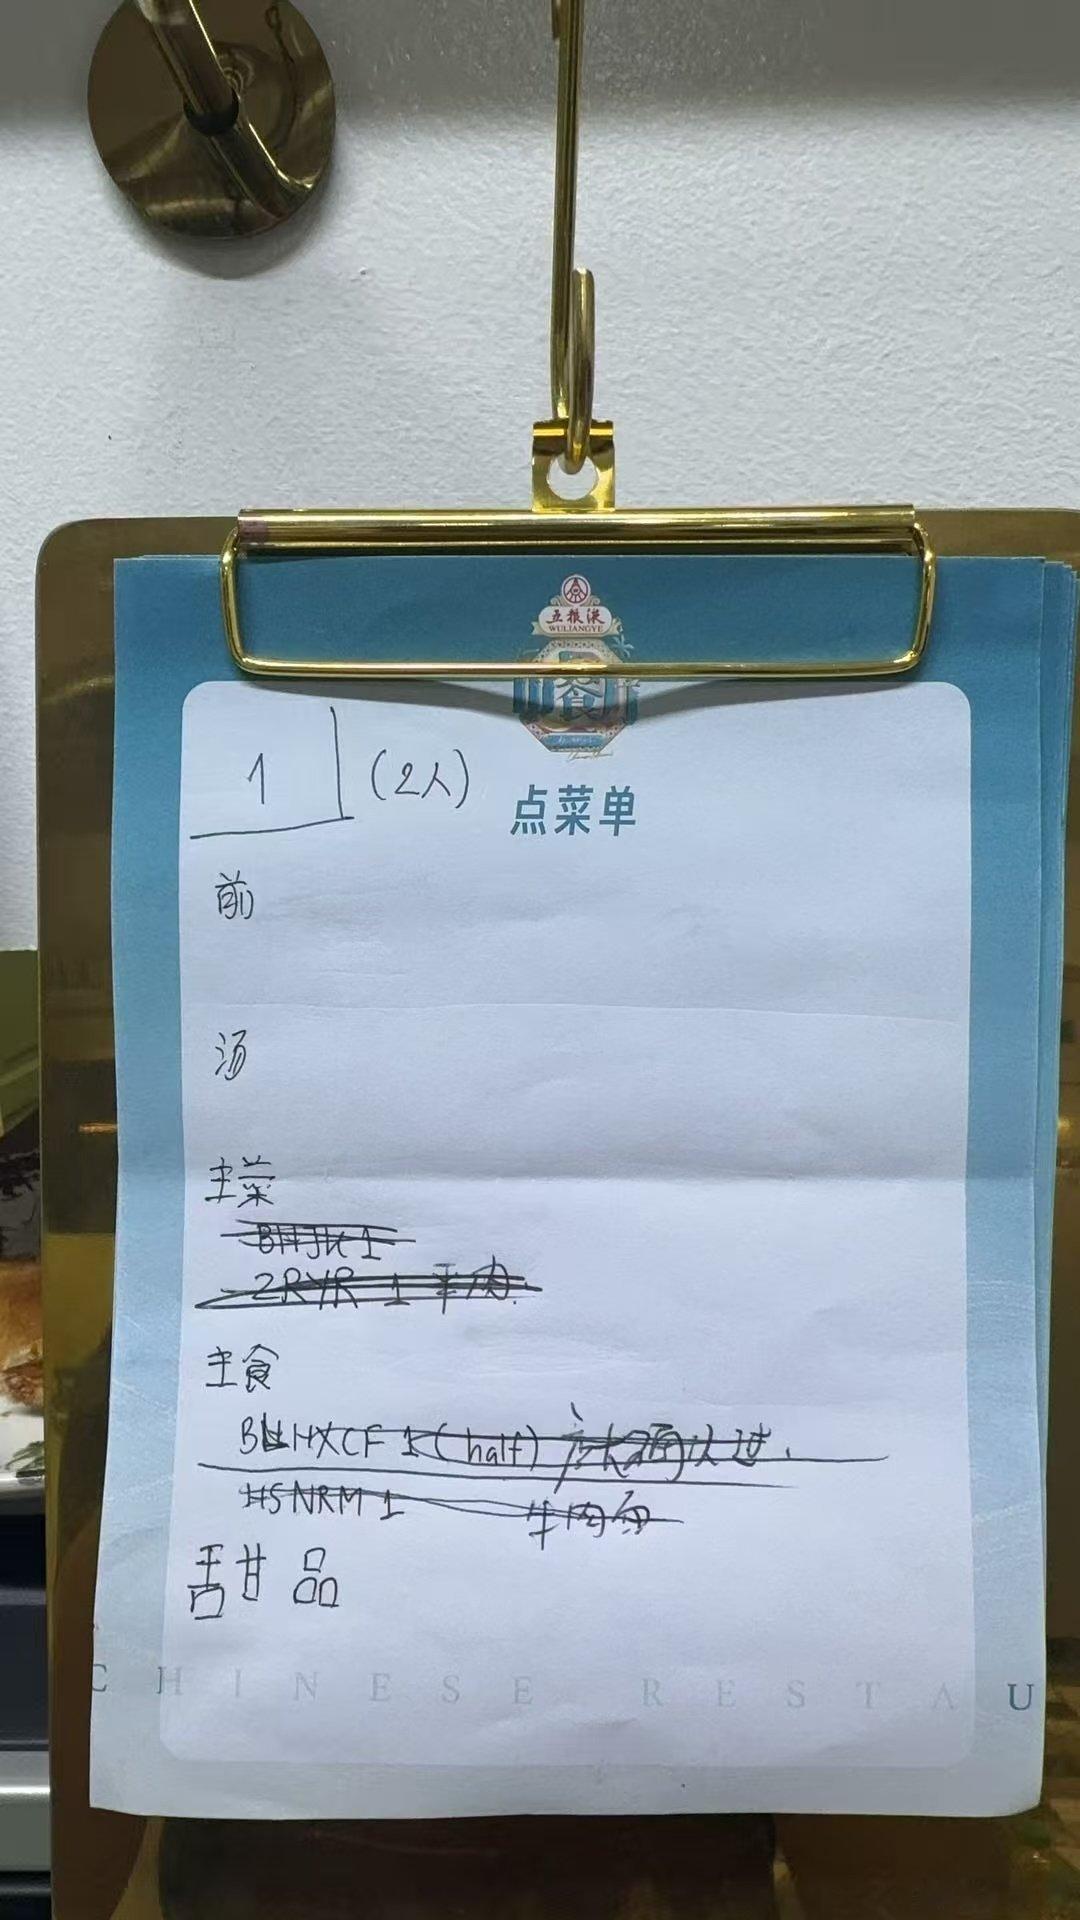 五粮液
WULIANGYE
1 (2人)
点菜单
前
汤
主菜
BHJK 1
ZRYR 1 羊肉
主食
HXCF 1 (half)
HSNRM 1 牛肉面
甜品
CHINESE RESTAU